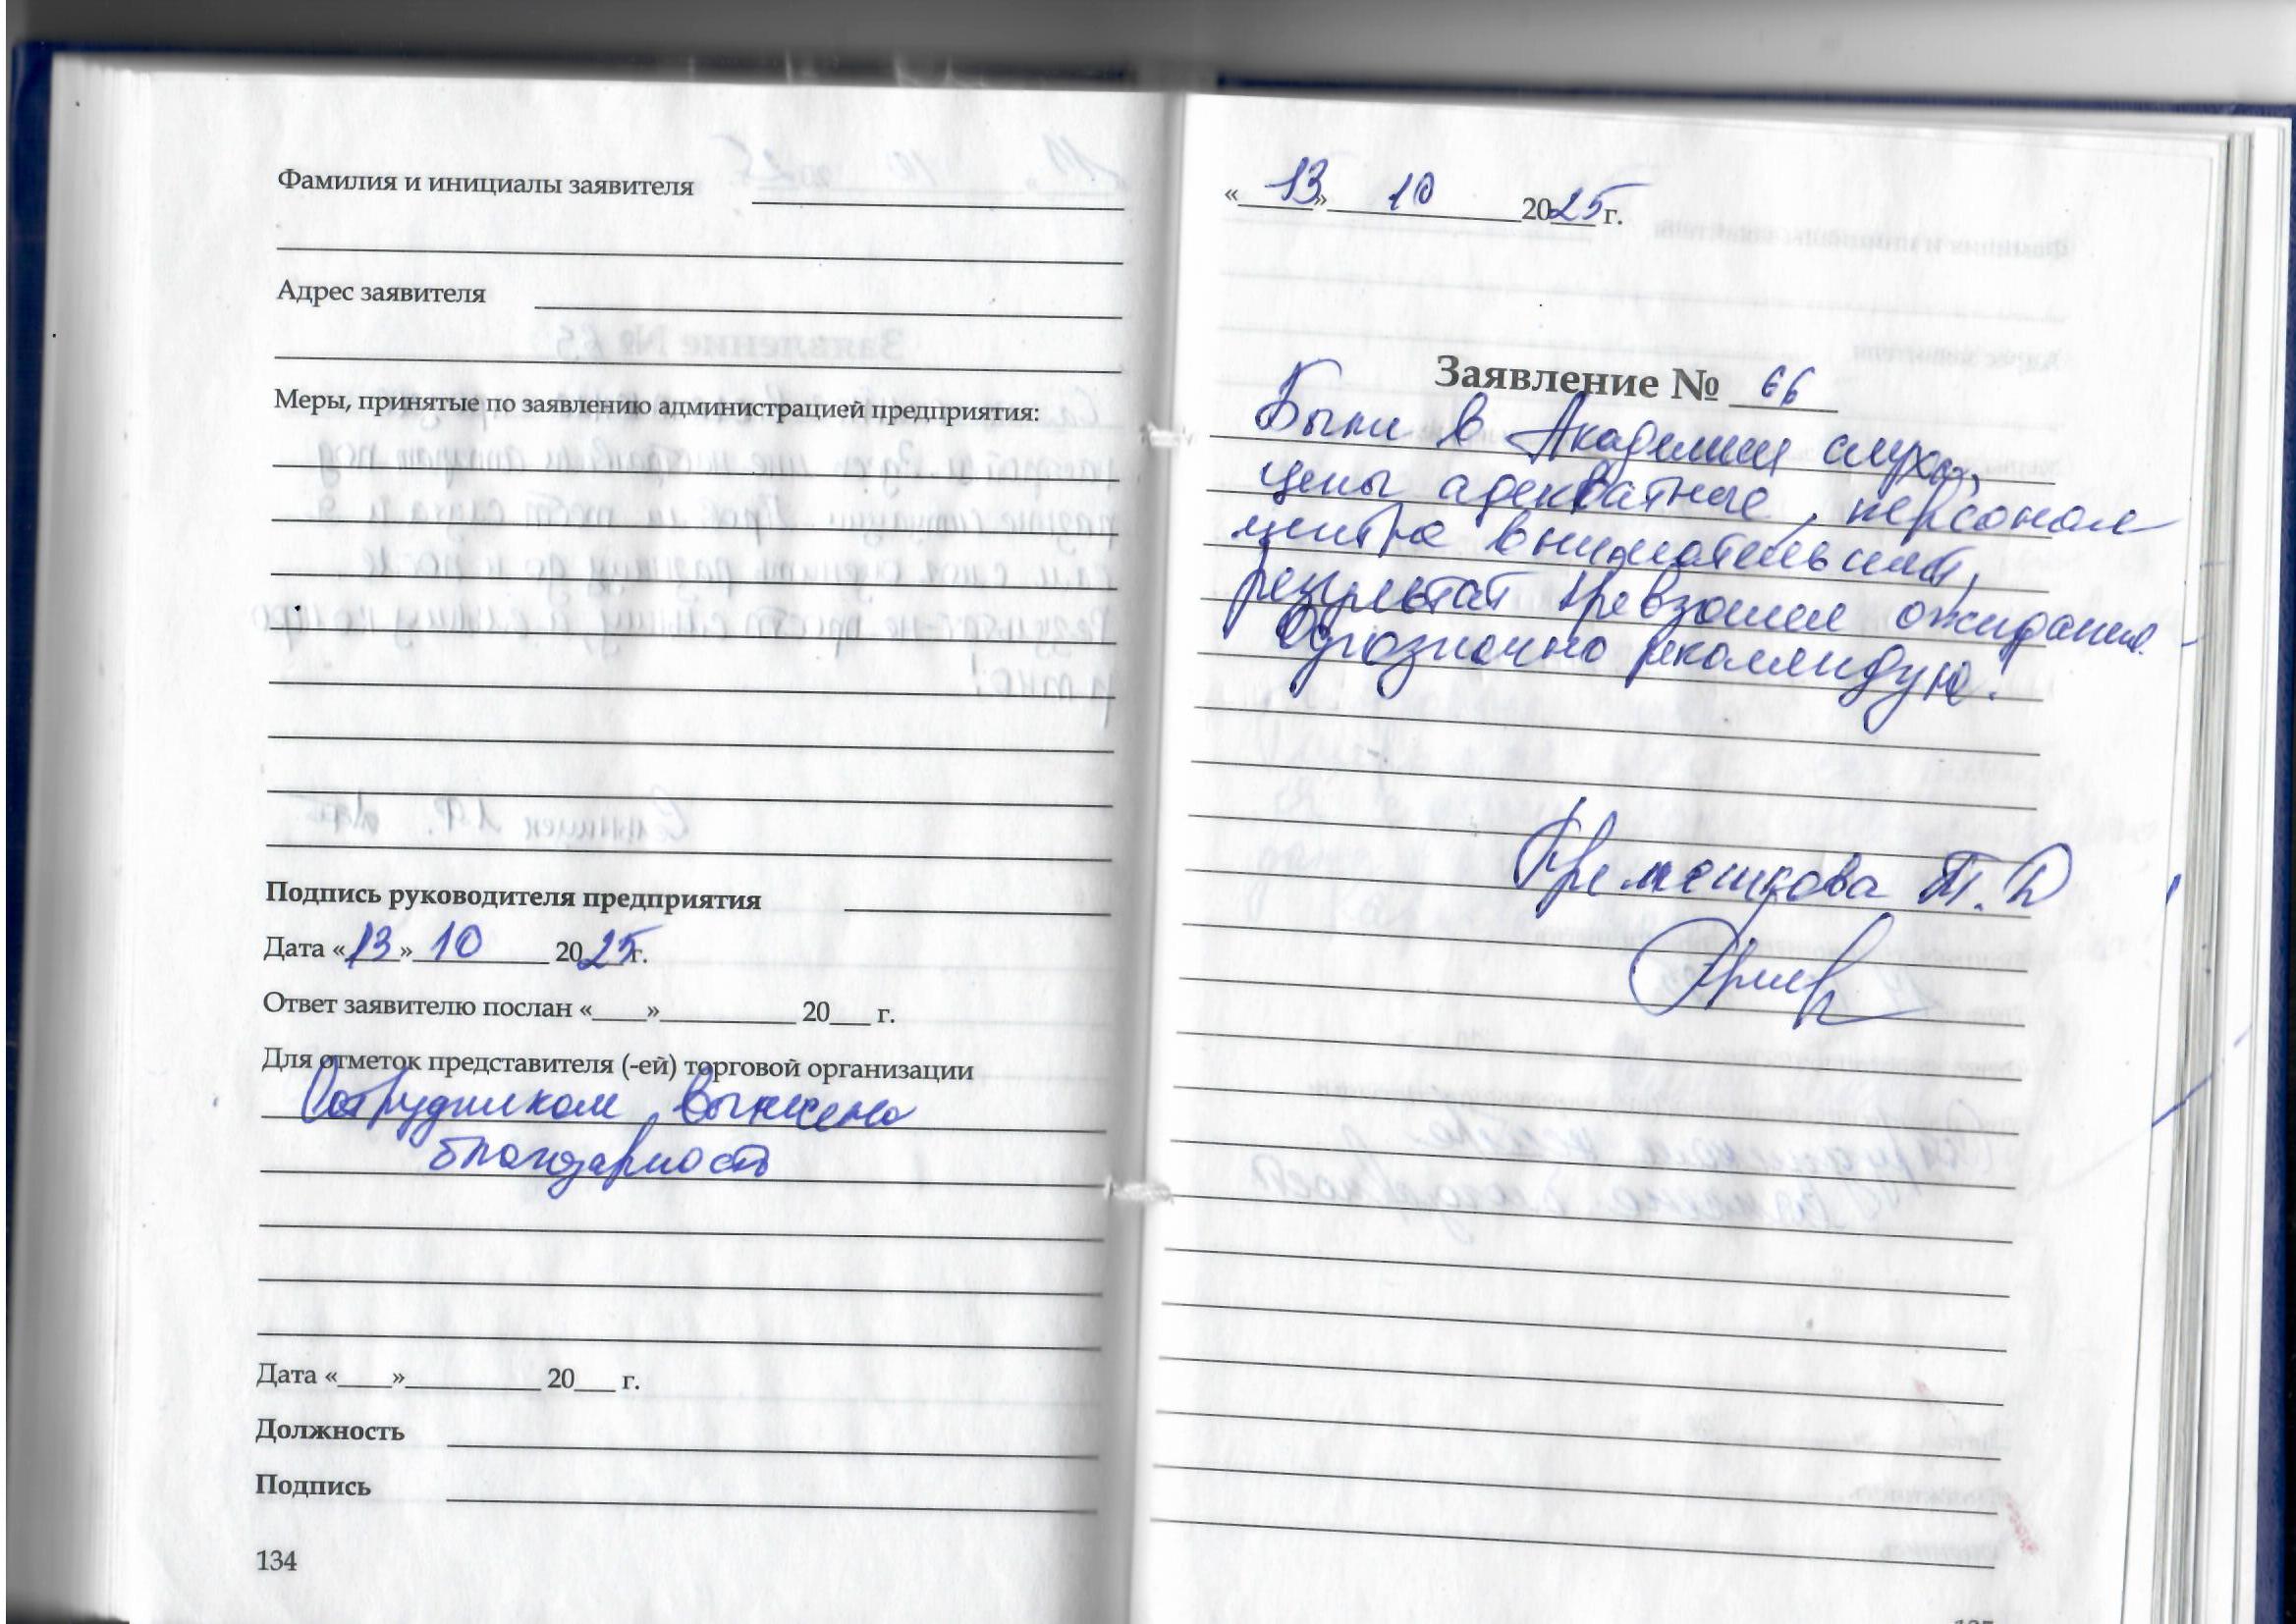 Фамилия и инициалы заявителя
Адрес заявителя
Меры, принятые по заявлению администрацией предприятия:
Подпись руководителя предприятия
Дата «13» 10 2025г.
Ответ заявителю послан «____»__________ 20___ г.
Для отметок представителя (-ей) торговой организации
Сотрудникам вынесена
благодарность
Дата «____»__________ 20___ г.
Должность
Подпись
134
«13» 10 2025 г.
Заявление № 66
Были в Академии слуха,
цены адекватные, персонал
центра внимательный,
результат превзошел ожидания.
Однозначно рекомендую!
Т. Д